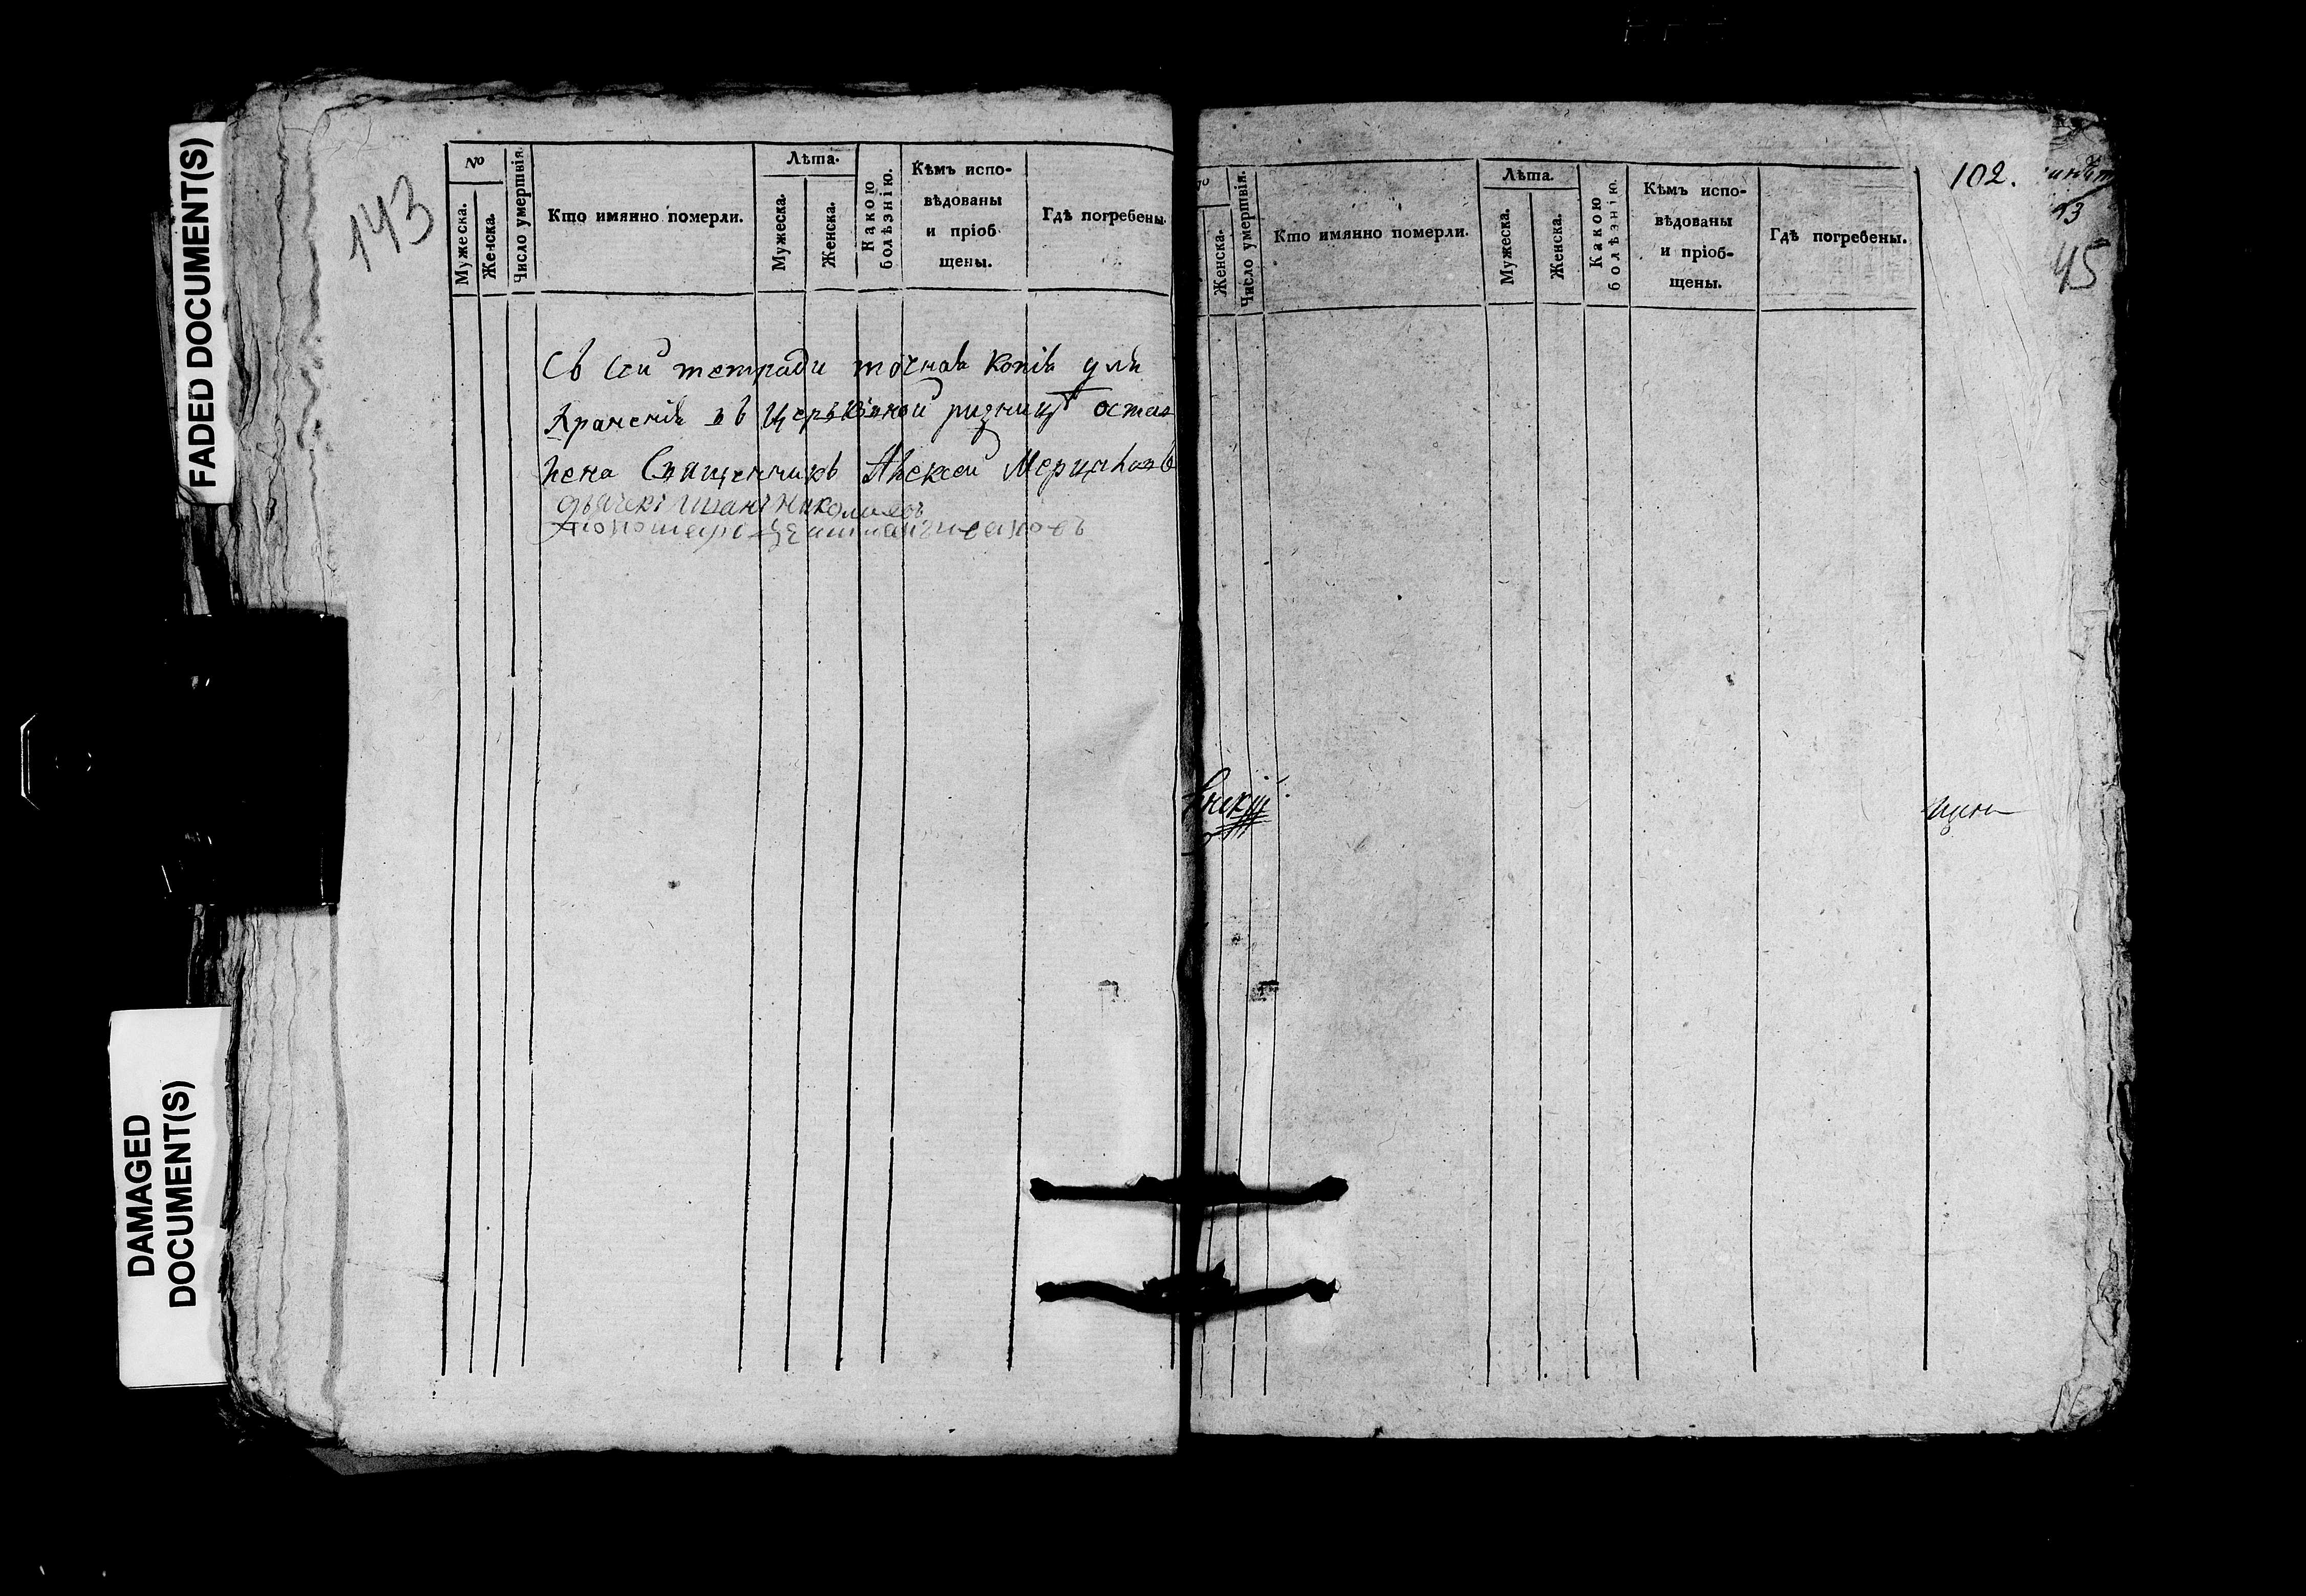 FADED DOCUMENT(S)
DAMAGED
DOCUMENT(S)
143
№
Мужеска.
Женска.
Число умертвія.
Кто имянно померли.
Лѣта.
Мужеска.
Женска.
Какою
болѣзнію.
Кѣмъ испо-
вѣдованы
и пріоб
щены.
Гдѣ погребены.
Съ сей тетради точная копія для
Храненія въ церьковной ризницѣ остав
лена Священникъ Алексей Мерцаловъ
дьячекъ Иванъ Николаевъ
Пономарь
Женска.
Число умертвія.
Кто имянно померли.
Лѣта.
Мужеска.
Женска.
Какою
болѣзнію.
Кѣмъ испо-
вѣдованы
и пріоб-
щены.
Гдѣ погребены.
102.
45